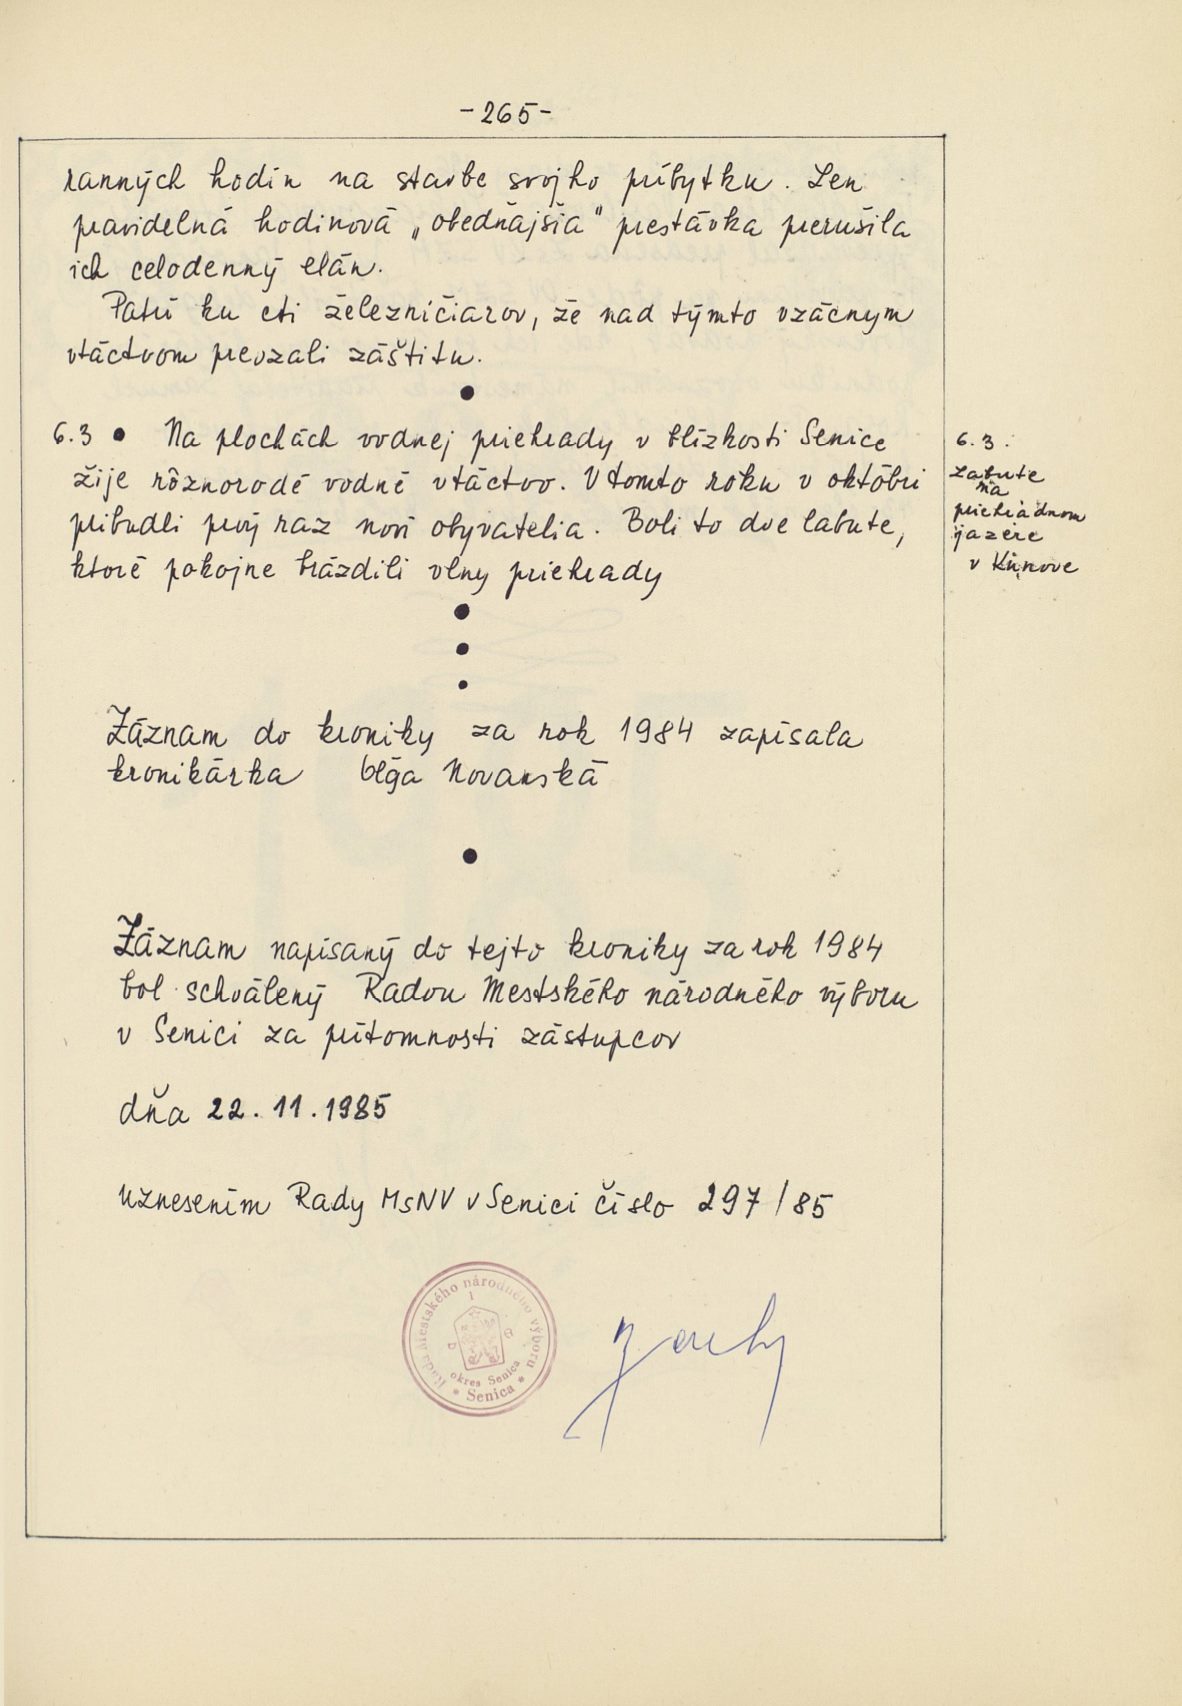 -265-
ranných hodín na stavbe svojho príbytku. Len
pravidelná hodinová „obedňajšia" prestávka prerušila
ich celodenný elán.
Patrí ku cti železničiarov, že nad týmto vzácnym
vtáctvom prevzali záštitu.
6.3 • Na plochách vodnej priehrady v blízkosti Senice
žije rôznorodé vodné vtáctvo. V tomto roku v októbri
pribudli prvý raz noví obyvatelia. Boli to dve labute,
ktoré pokojne brázdili vlny priehrady
6.3.
Labute
na
priehradnom
jazere
v Kunove
Záznam do kroniky za rok 1984 zapísala
kronikárka Oľga Novanská
Záznam napísaný do tejto kroniky za rok 1984
bol schválený Radou Mestského národného výboru
v Senici za prítomnosti zástupcov
dňa 22. 11. 1985
uznesením Rady MsNV v Senici číslo 297/85
Rada Mestského národného výboru
1
okres Senica
* Senica *